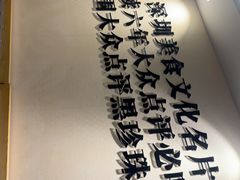 深圳美食文化名片
续六年大众点评必
大众点评黑珍珠